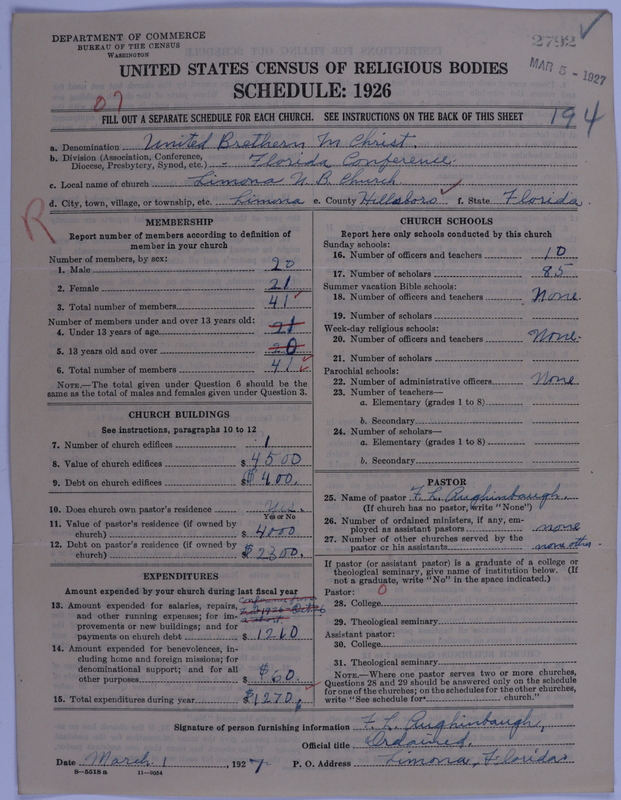 DEPARTMENT OF COMMERCE
BUREAU OF THE CENSUS
WASHINGTON
2792
MAR 5 - 1927
UNITED STATES CENSUS OF RELIGIOUS BODIES
SCHEDULE: 1926
07
194
FILL OUT A SEPARATE SCHEDULE FOR EACH CHURCH. SEE INSTRUCTIONS ON THE BACK OF THIS SHEET
a. Denomination United Brethern In Christ.
b. Division (Association, Conference, Diocese, Presbytery, Synod, etc.) - Florida Conference.
c. Local name of church Limona U. B. Church
d. City, town, village, or township, etc. Limona e. County Hillsboro f. State Florida.
R
MEMBERSHIP
Report number of members according to definition of
member in your church
Number of members, by sex:
1. Male 20
2. Female 21
3. Total number of members 41
Number of members under and over 13 years old:
4. Under 13 years of age 21
5. 13 years old and over 20
6. Total number of members 41
NOTE.—The total given under Question 6 should be the
same as the total of males and females given under Question 3.
CHURCH BUILDINGS
See instructions, paragraphs 10 to 12
7. Number of church edifices 1
8. Value of church edifices $4500
9. Debt on church edifices $400.
10. Does church own pastor's residence Yes.
Yes or No
11. Value of pastor's residence (if owned by
church) $4000
12. Debt on pastor's residence (if owned by
church) $2300.
EXPENDITURES
Amount expended by your church during last fiscal year
13. Amount expended for salaries, repairs,
and other running expenses; for im-
provements or new buildings; and for
payments on church debt $1210
14. Amount expended for benevolences, in-
cluding home and foreign missions; for
denominational support; and for all
other purposes $60.
15. Total expenditures during year $1270
CHURCH SCHOOLS
Report here only schools conducted by this church
Sunday schools:
16. Number of officers and teachers 10
17. Number of scholars 85
Summer vacation Bible schools:
18. Number of officers and teachers None
19. Number of scholars
Week-day religious schools:
20. Number of officers and teachers None.
21. Number of scholars
Parochial schools:
22. Number of administrative officers None
23. Number of teachers—
a. Elementary (grades 1 to 8)
b. Secondary
24. Number of scholars—
a. Elementary (grades 1 to 8)
b. Secondary
PASTOR
25. Name of pastor F. L. Aughinbaugh.
(If church has no pastor, write "None")
26. Number of ordained ministers, if any, em-
ployed as assistant pastors none
27. Number of other churches served by the
pastor or his assistants none other.
If pastor (or assistant pastor) is a graduate of a college or
theological seminary, give name of institution below. (If
not a graduate, write "No" in the space indicated.)
Pastor: 0
28. College
29. Theological seminary
Assistant pastor:
30. College
31. Theological seminary
NOTE.—Where one pastor serves two or more churches,
Questions 28 and 29 should be answered only on the schedule
for one of the churches; on the schedules for the other churches,
write "See schedule for church."
Signature of person furnishing information F. L. Aughinbaugh,
Official title Ordained.
Date March 1, 1927 P. O. Address Limona, Florida
8—5518 a 11—9054